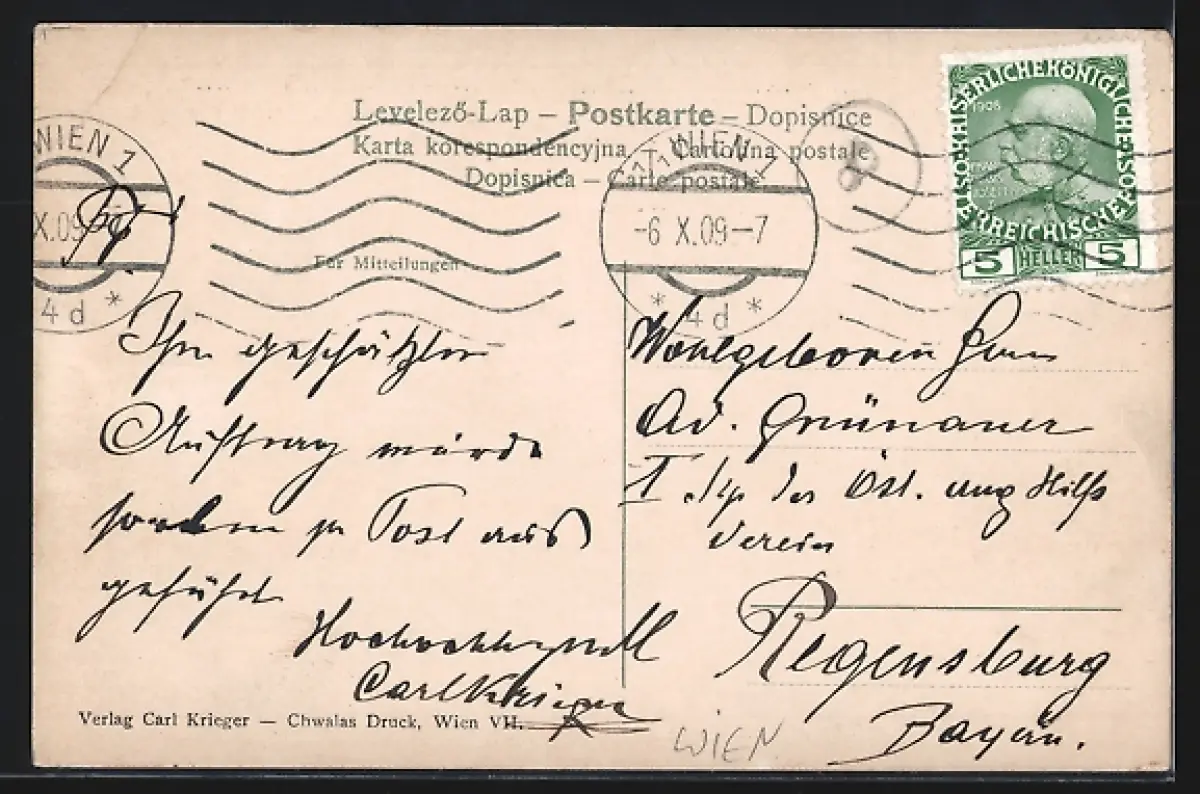 Levelező-Lap – Postkarte – Dopisnice
Karta korespondencyjna – Cartolina postale
Dopisnica – Carte postale
WIEN 1
X.09
4 d *
1/1 WIEN 1
-6 X.09-7
* 4 d *
8
KAISERLICHE KÖNIGLICHE ÖSTERREICHISCHE POST
1908
5 HELLER 5
Für Mitteilungen
Ihr geschätzter
Auftrag wurde
soeben pr Post aus
geführt
Hochachtungsvoll
Carl Krieger
Wohlgeboren Herrn
Ad. Grünauer
I. der Öst. ung Hilfs
Verein
Regensburg
Bayern.
Verlag Carl Krieger — Chwalas Druck, Wien VII.
WIEN